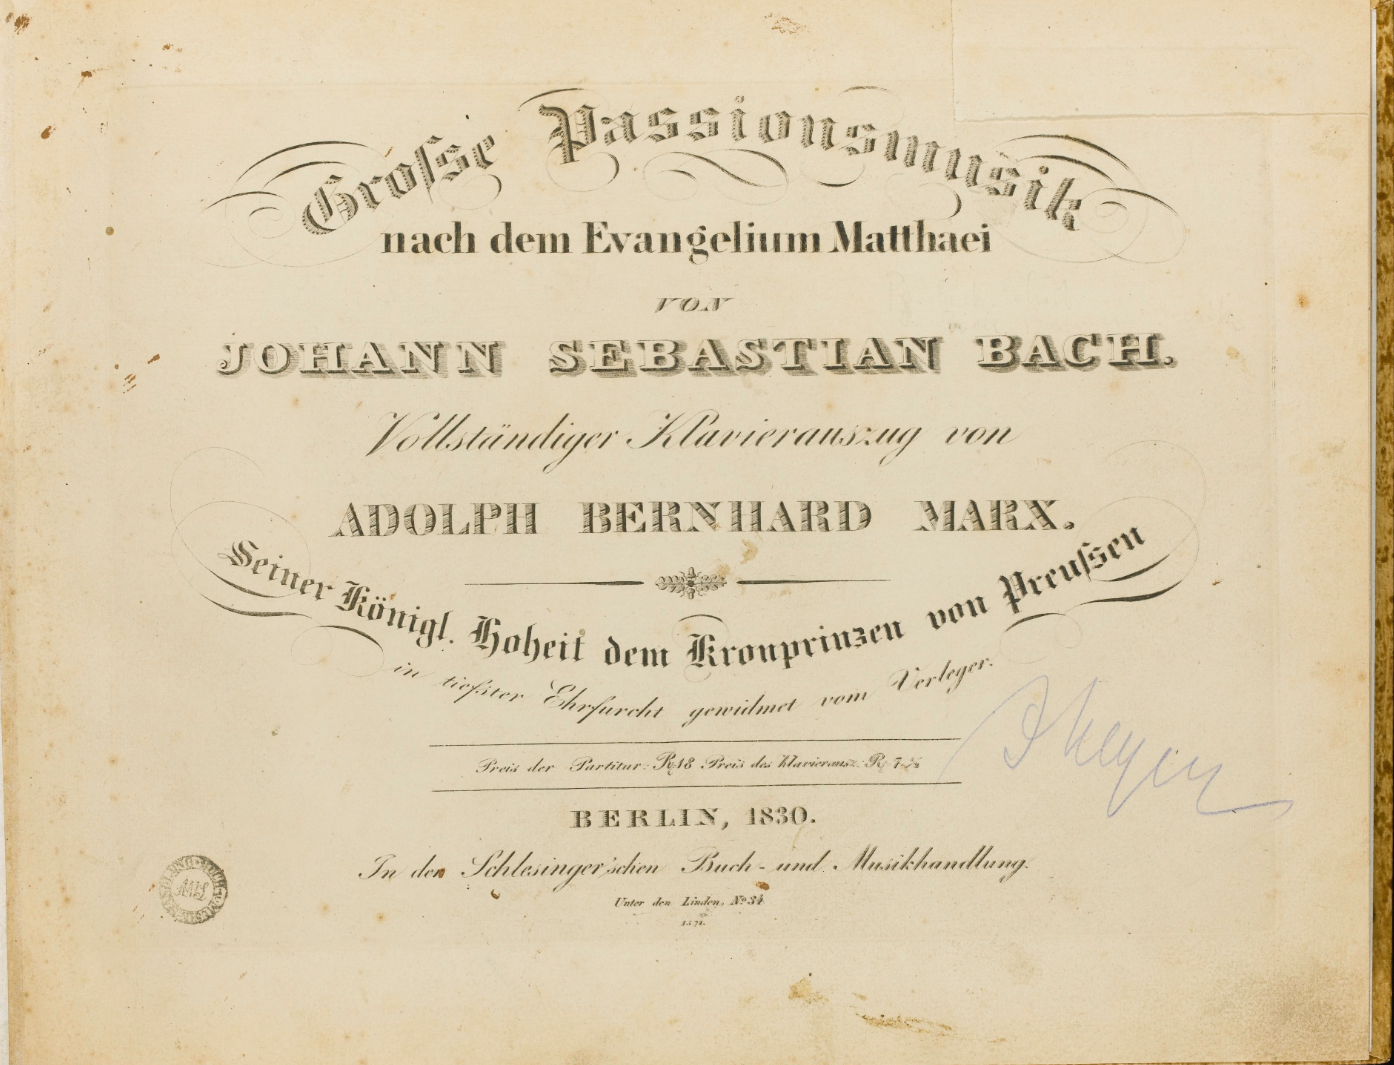 Grosse Passionsmusik
nach dem Evangelium Matthaei
VON
JOHANN SEBASTIAN BACH.
Vollständiger Klavierauszug von
ADOLPH BERNHARD MARX.
Seiner Königl. Hoheit dem Kronprinzen von Preussen
in tiefster Ehrfurcht gewidmet vom Verleger.
Preis der Partitur: R 18 Preis des Klavierausz. R 7½
BERLIN, 1830.
In der Schlesinger'schen Buch- und Musikhandlung.
Unter den Linden, No 34